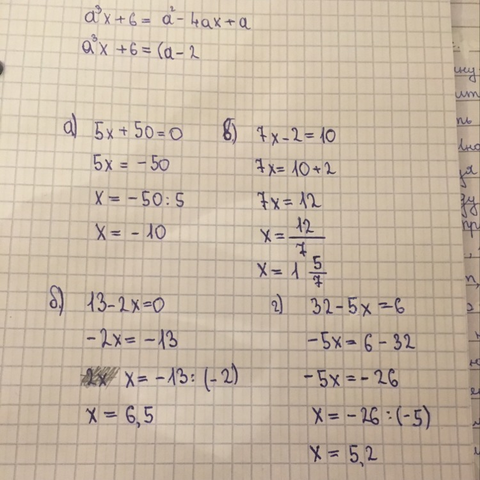 a³x + 6 = a² - 4ax + a
a³x + 6 = (a - 2
а) 5x + 50 = 0
5x = -50
x = -50 : 5
x = -10
в) 7x - 2 = 10
7x = 10 + 2
7x = 12
x = 12/7
x = 1 5/7
б) 13 - 2x = 0
-2x = -13
x = -13 : (-2)
x = 6,5
г) 32 - 5x = 6
-5x = 6 - 32
-5x = -26
x = -26 : (-5)
x = 5,2